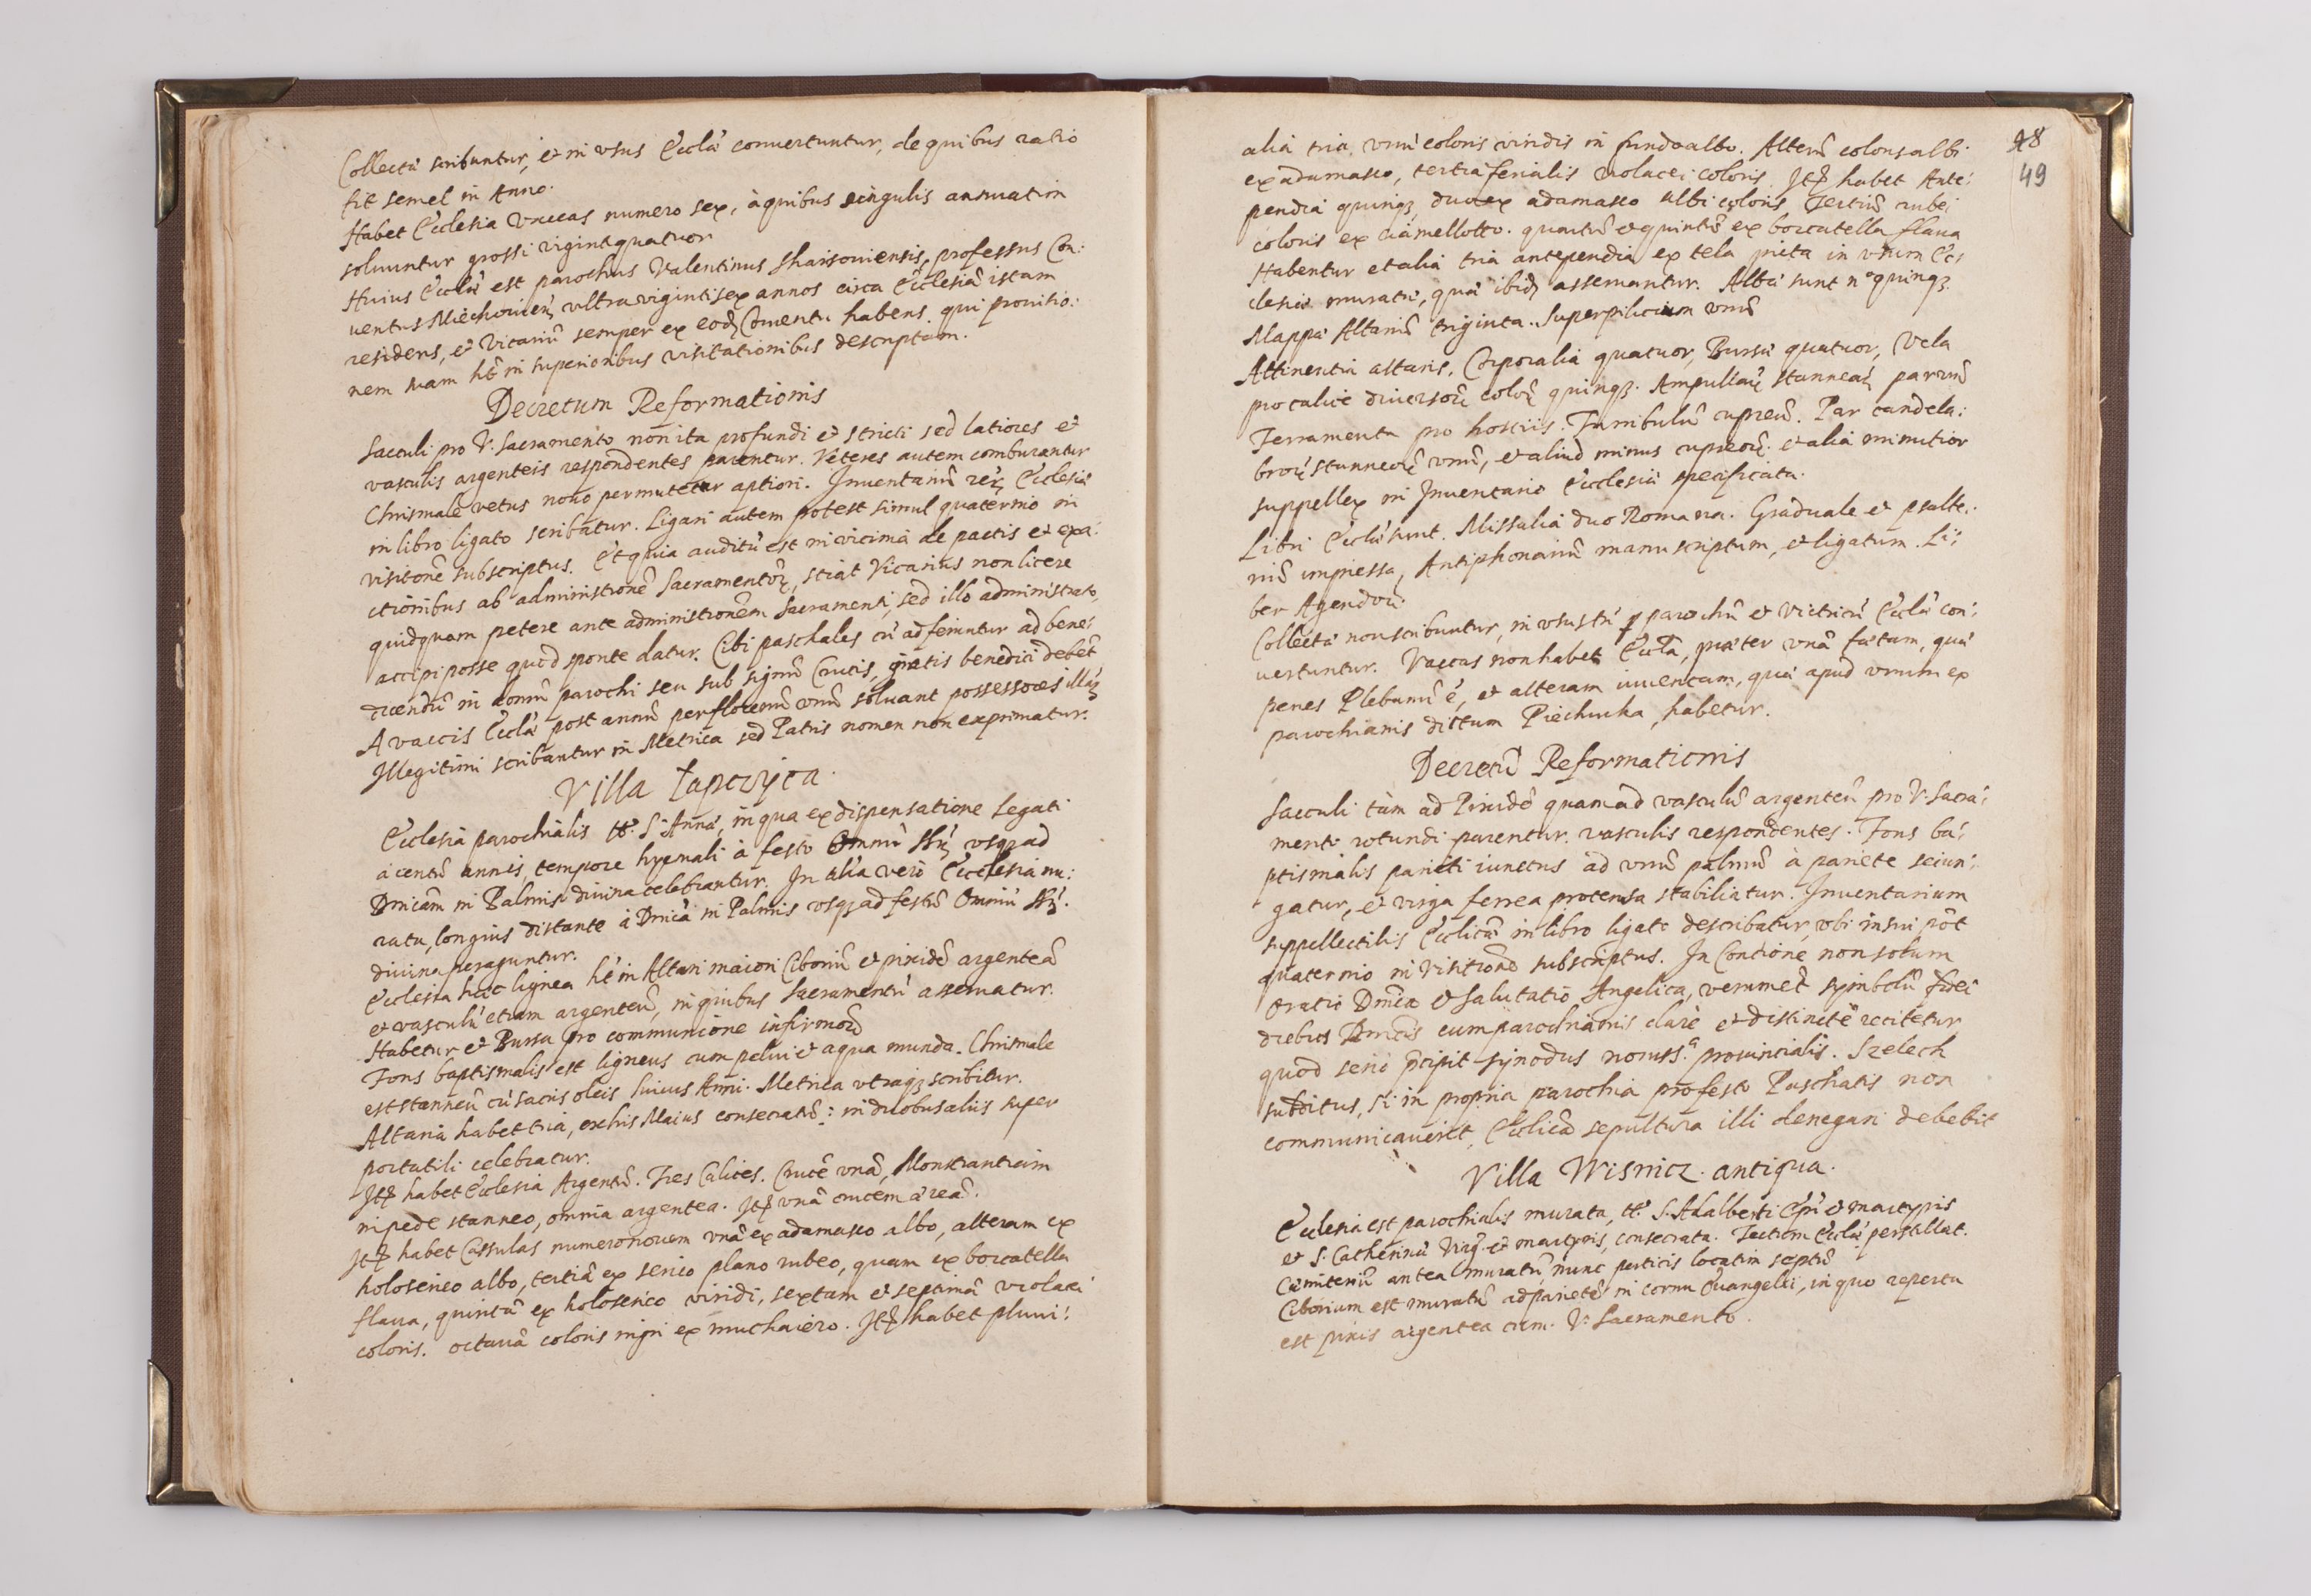 Collectæ scribuntur, et in vsus Eccl͠æ conuertuntur, de quibus ratio
fit semel in Anno.
Habet Ecclesia Vaccas numero sex, à quibus singulis annuatim
soluuntur grossi vigintiquatuor
Huius Eccl͠æ est parochus Valentinus professus Con:
uentus Miechouien̄ vltra vigintisex annos circa Ecclesiā istam
residens, et Vicariū semper ex eod̨ Conuentu habens. qui prouisio:
nem suam h͠t in superioribus visitationibus descriptam.
Decretum Reformationis
Sacculi pro V. Sacramento non ita profundi et stricti sed latiores et
vasculis argenteis respondentes parentur. Veteres autem comburantur
Chrismale vetus nouo permutetur aptiori. Inuentariū rerꝝ Ecclesiæ
in libro ligato scribatur. Ligari autem potest simul quaternio in
visitōne subscriptus. Et quia auditū est in vicinia de pactis et exa:
ctionibus ab administrōne Sacramentoꝝ, sciat Vicarius non licere
quidquam petere ante administrōnem Sacramenti, sed illo administrato,
accipi posse quod sponte datur. Cibi paschales cū adferuntur ad bene:
dicendū in domū parochi seu sub signū Crucis, gratis benedici debēt
A vaccis Eccl͠æ post annū per florenū vnū soluant possessores illaꝝ
Illegitimi scribantur in Metrica sed Patris nomen non exprimatur.
Villa Łapczyca.
Ecclesia parochialis tt͠. S. Annæ, in qua ex dispensatione Legati
à centū annis, tempore hyemali à festo Omniū SSꝝ vsqꝫ ad
Dn͠icam in Palmis diuina celebrantur. In alia verò Ecclesia mu:
rata, longius distante à Dn͠ica in Palmis vsqꝫ ad festū Omniū SSꝝ.
diuina peraguntur.
Ecclesia hæc lignea h͠t in Altari maiori Ciboriū et pixidē argenteā
et vasculū etiam argenteū, in quibus Sacramentū asseruatur.
Habetur et Bursa pro communione infirmoꝝ
Fons baptismalis est ligneus cum pelui et aqua munda. Chrismale
est stanneū cū sacris oleis huius Anni. Metrica vtraqꝫ scribitur.
Altaria habet tria, ex his Maius consecratū: in duobus aliis super
portatili celebratur.
Itꝫ habet Ecclesia Argentū. Tres Calices. Crucē vnā, Monstrantiam
in pede stanneo, omnia argentea. Itꝫ vnā crucem æreā.
Itꝫ habet Cassulas numero nouem vnā ex adamasco albo, alteram ex
holoserico albo, tertiā ex serico plano rubeo, quam ex borcatella
flaua, quintā ex holoserico viridi, sextam et septimā violacei
coloris. octauā coloris nigri ex muchaiero. Itꝫ habet pluui:
48
49
alia tria vnū coloris viridis in fundo albo. Alterū coloris albi
ex adamasco, tertia ferialis violacei coloris. Itꝫ habet Ante:
pendia quinqꝫ duo ex adamasco albi coloris Tertiū rubei
coloris ex ciamellotto. quartū et quintū ex borcatella flaua
Habentur et alia tria antependia ex tela picta in vsum Ec:
clesiæ muratæ, quæ ibid̨ asseruantur. Albæ sunt n° quinqꝫ
Mappæ Altariū triginta. Superpilicium vnū
Attinentia altaris. Corporalia quatuor, Bursæ quatuor, Vela
pro calice diuersoꝝ coloꝝ quinqꝫ. Ampullaꝝ stanneaꝝ par vnū
Ferramenta pro hostiis. Turribulū cupreū. Par candela:
broꝝ stanneoꝝ vnū, et aliud minus cupreoꝝ. et alia minutior
suppellex in Inuentario Ecclesiæ specificata.
Libri Eccl͠æ sunt. Missalia duo Romana. Graduale et psalte:
riū impressa, Antiphonariū manuscriptum, et ligatum. Li:
ber Agendoꝝ.
Collectæ non scribuntur, in vsus tn̄ p parochū et Victricū Eccl͠æ con:
uertuntur. Vaccas non habet Eccl͠a, præter vnā fœtam, quæ
penes Plebanū ē, et alteram iuuencam, quæ apud vnum ex
parochianis dictum Piechucka, habetur.
Decretū Reformationis
Sacculi tàm ad Pixidē quam ad vasculū argenteū pro V. Sacra:
mento rotundi parentur. vasculis respondentes. Fons ba:
ptismalis parieti iunctus ad vnū palmū à pariete seiun:
gatur, et virga ferrea protensa stabiliatur. Inuentarium
suppellectilis Eccl͠icæ in libro ligato describatur, vbi insui pōt
quaternio in Visitione subscriptus. In Contione non solum
oratio Dn͠ica et Salutatio Angelica, verumet̄ symbolū fidei
diebus Dn͠icis cum parochianis clarè et distinctè recitetur
quod seriò p̄cipit synodus nouiss.ª prouincialis. Szelech
subditus, si in propria parochia pro festo Paschatis non
communicauerit, Eccl͠ica sepultura illi denegari debebit
Villa Wisnicz antiqua.
Ecclesia est parochialis murata, tt͠. S. Adalberti Ep͠i et martyris
et S. Catherinæ Virg. et martyris, consecrata. Tectum Eccl͠æ perstillat.
Cœmiteriū antea muratū, nunc perticis locatim septū
Ciborium est muratū ad parietē in cornu Euangelii, in quo reperta
est pixis argentea cum V. Sacramento.